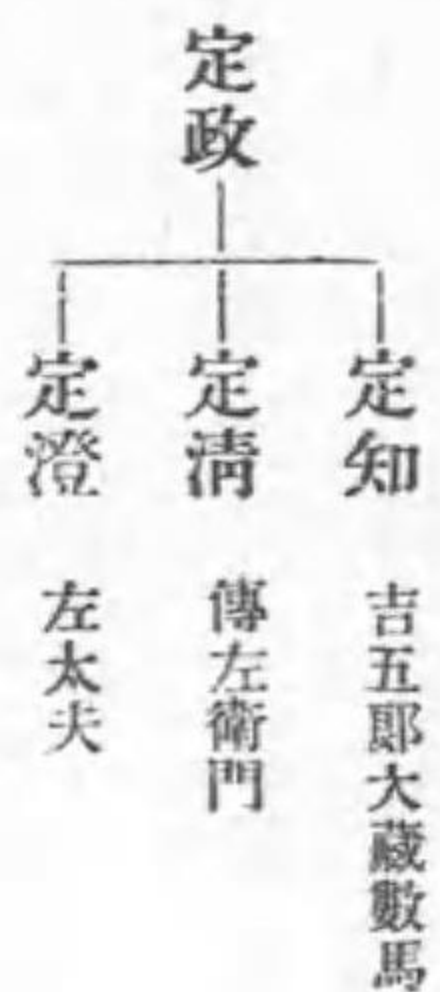 定政
定知 吉五郎大藏數馬
定淸 傳左衞門
定澄 左太夫